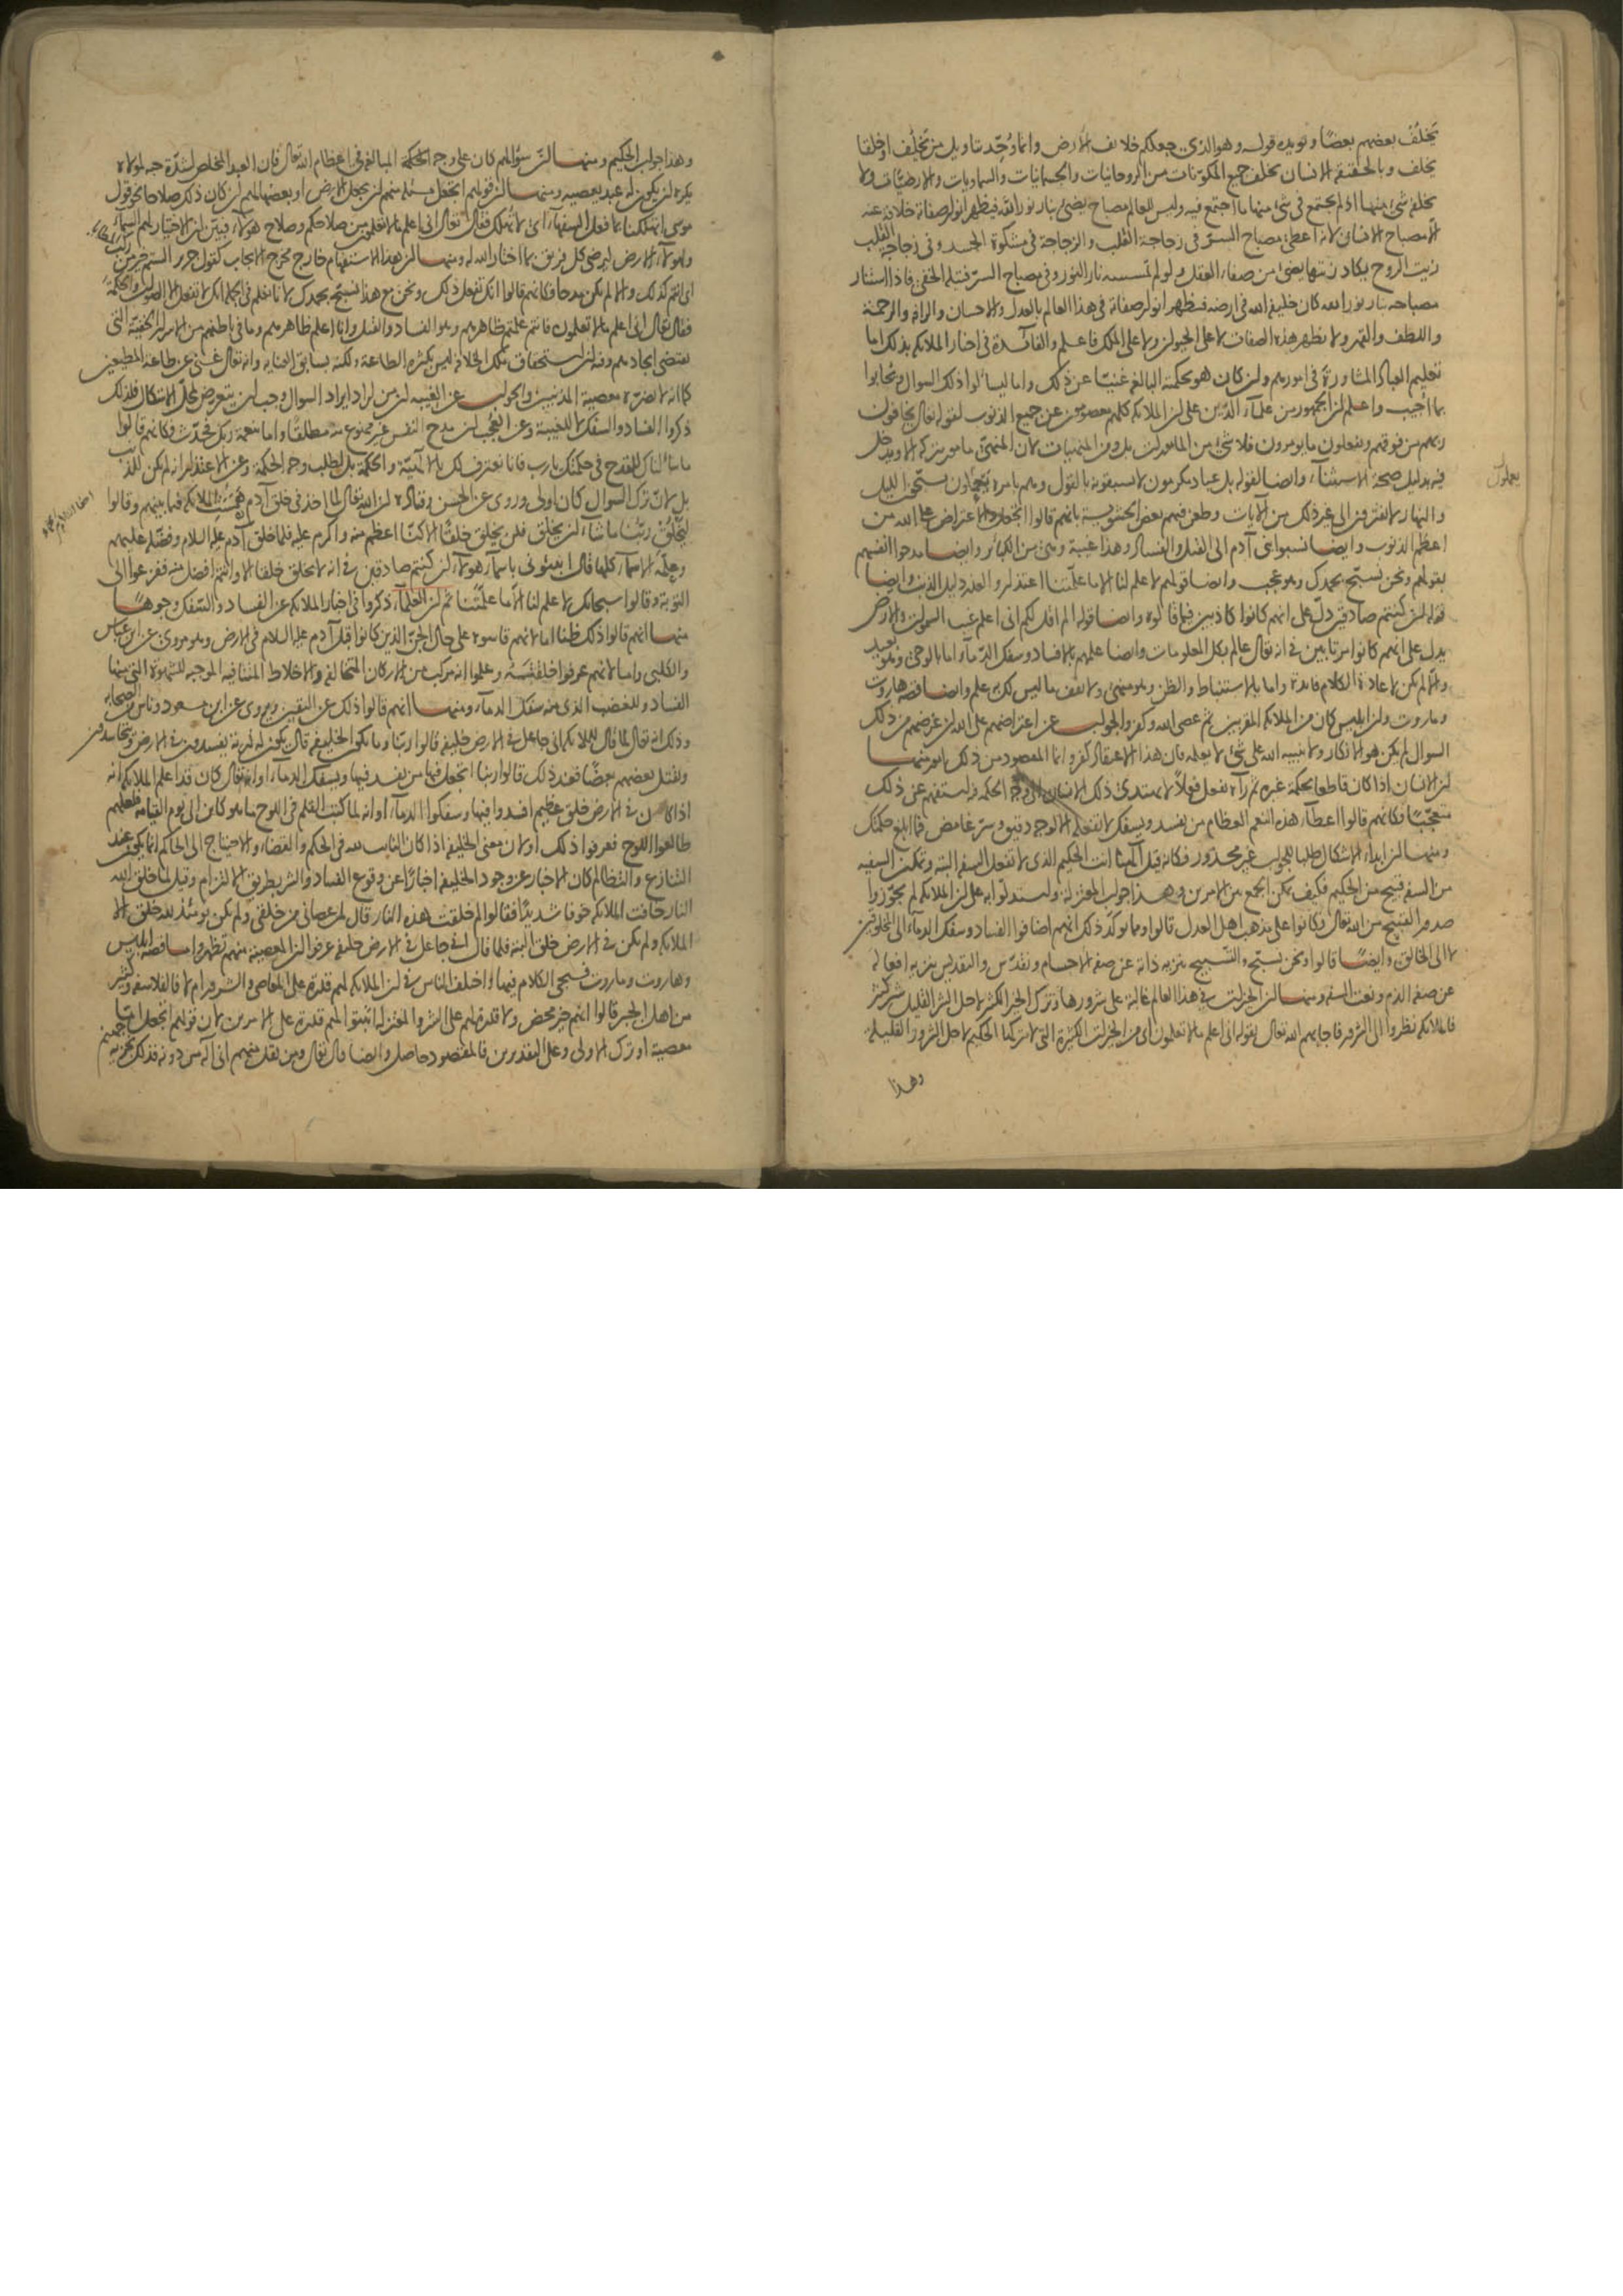 يخلف بعضهم بعضًا ويؤيده قوله وهو الذي جعلكم خلائف الأرض وانما وُحّد بتاويل من يخلف او خلقا
يخلف وبالحقيقة الانسان يخلف جميع المكونات من الروحانيات والجسمانيات والسماويات والارضيّات ولا
يخلفه شيء منها اذ لم يجتمع في شيء منها ما اجتمع فيه وليس للعالم مصباح يضيء بنار نور الله فيظهر انوار صفاته خلافة عنه
الّا مصباح الانسان لانه اعطي مصباح السرّ في زجاجة القلب والزجاجة في مشكوة الجسد وفي زجاجة القلب
زيت الروح يكاد زيتها يضيء من صفاء العقل ولو لم تمسسه نار النور وفي مصباح السرّ فتيلة الخفي فاذا استنار
مصباحه بنار نور الله كان خليفة الله في ارضه فيظهر انوار صفاته في هذا العالم بالعدل والاحسان والرافة والرحمة
واللطف والقهر ولا يظهر هذه الصفات لا على الحيوان ولا على الملك فاعلم والفائدة في اخبار الملائكة بذلك اما
تعليم العباد المشاورة في امورهم وان كان هو بحكمته البالغة غنيّا عن ذلك واما ليسألوا ذلك السوال ويجابوا
بما اجيب واعلم ان الجمهور من علماء الدّين على ان الملائكة كلهم معصومون عن جميع الذنوب لقوله تعالى يخافون
ربهم من فوقهم ويفعلون ما يؤمرون فلا شيء من المامورات بل ومن المنهيات لان المنهيّ مامور بتركه الا ويدخل
فيه بدليل صحة الاستثناء وايضا لقوله بل عباد مكرمون لا يسبقونه بالقول وهم بامره يعملون يسبحون الليل
والنهار لا يفترون الى غير ذلك من الآيات وطعن فيهم بعض الحشوية بانهم قالوا اتجعل والاعتراض على الله من
اعظم الذنوب وايضا نسبوا بني آدم الى القتل والفساد وهذا غيبة وهي من الكبائر وايضا مدحوا انفسهم
بقولهم ونحن نسبّح بحمدك وهو عجب وايضا قولهم لا علم لنا الا ما علّمتنا اعتذار والعذر دليل الذنب وايضا
قوله ان كنتم صادقين دلّ على انهم كانوا كاذبين فيما قالوه وايضا قوله الم اقل لكم اني اعلم غيب السموات والارض
يدل على انهم كانوا مرتابين في انه تعالى عالم بكل المعلومات وايضا علمهم بالافساد وسفك الدماء اما بالوحي وهو بعيد
والّا لم يكن لاعادة الكلام فائدة واما بالاستنباط والظن وهو منهيّ ولا تقف ما ليس لك به علم وايضا قصة هاروت
وماروت وان ابليس كان من الملائكة المقربين ثم عصى الله وكفر والجواب عن اعتراضهم على الله ان غرضهم من ذلك
السوال لم يكن هو الانكار ولا تنبيه الله على شيء لا يعلمه فان هذا الاعتقاد كفر وانما المقصود من ذلك امور منها
ان الانسان اذا كان قاطعا بحكمة غيره ثم رآه يفعل فعلًا لا يهتدي ذلك الانسان الى وجه الحكمة فيه استفهم عن ذلك
متعجّبًا فكانهم قالوا اعطاء هذه النعم العظام من يفسد ويسفك لا تفعله الا لوجه دقيق وسر غامض فما ابلغ حكمتك
ومنها ان ابداء الاشكال طلبا للجواب غير محذور فكانه قيل الهنا انت الحكيم الذي لا تفعل السفه البتة وتمكين السفيه
من السفه قبيح من الحكيم فكيف يمكن الجمع بين الامرين وهذا جواب المعتزلة واستدلوا به على ان الملائكة لم يجوّزوا
صدور القبيح من الله تعالى وكانوا على مذهب اهل العدل قالوا ومما يؤكد ذلك انهم اضافوا الفساد وسفك الدماء الى المخلوقين
لا الى الخالق وايضًا قالوا ونحن نسبّح والتسبيح تنزيه ذاته عن صفة الاجسام ونقدّس والتقديس تنزيه افعاله
عن صفة الذم ونعت السفه ومنها ان الخيرات في هذا العالم غالبة على شرورها وترك الخير الكثير لاجل الشر القليل شر كثير
فالملائكة نظروا الى الشرور فاجابهم الله تعالى بقوله اني اعلم ما لا تعلمون اي من الخيرات الكثيرة التي لا يتركها الحكيم لاجل الشرور القليلة
وهذا
يعملون
وهذا جواب الحكيم ومنها ان سؤالهم كان على وجه الحكمة المبالغة في اعظام الله تعالى فان العبد المخلص لشدّة حبه لمولاه
يكره ان يكون له عبد يعصيه ومنها ان قولهم اتجعل مسئلة منهم ان يجعل الارض او بعضها لهم ان كان ذلك صلاحا نحو قول
موسى اتهلكنا بما فعل السفهاء اي لا تهلك فقال تعالى اني اعلم ما لا تعلمون من صلاحكم وصلاح هؤلاء فبيّن ان الاختيار لهم السماء
ولهؤلاء الارض ليرضى كل فريق بما اختار الله له ومنها ان هذا الاستفهام خارج مخرج الايجاب كقول جرير الستم خير من ركب المطايا
اي انتم كذلك والا لم يكن مدحا فكانهم قالوا انك تفعل ذلك ونحن مع هذا نسبّح بحمدك لانا نعلم في الجملة انك لا تفعل الا الصواب والحكمة
فقال تعالى اني اعلم ما لا تعلمون فانتم علمتم ظاهرهم وهو الفساد والقتل وانا اعلم ظاهرهم وما في باطنهم من الاسرار الخفيّة التي
تقتضي ايجادهم وفيه ان استحقاق تلك الخلافة ليس بكثرة الطاعة ولكنه بسابق العناية وانه تعالى غني عن طاعة المطيعين
كما انه لا تضرّه معصية المذنبين والجواب عن الغيبة ان من اراد ايراد السوال وجب ان يتعرض لمحل الاشكال فلذلك
ذكروا الفساد والسفك لا للغيبة وعن العجب ان مدح النفس غير ممنوع منه مطلقًا واما بنعمة ربك فحدّث فكانهم قالوا
ما سألناك للقدح في حكمتك يا رب فانا نعترف لك بالالهيّة والحكمة بل لطلب وجه الحكمة وعن الاعتذار انه لم يكن للذنب
بل لانّ ترك السوال كان اولى وروي عن الحسن وقتادة ان الله تعالى لما اخذ في خلق آدم همست الملائكة فيما بينهم وقالوا
ليخلق ربّنا ما شاء ان يخلق فلن يخلق خلقًا الا كنّا اعظم منه واكرم عليه فلما خلق آدم عليه السلام وفضّله عليهم
وعلّمه الاسماء كلها قال انبئوني باسماء هؤلاء ان كنتم صادقين في انه لا يخلق خلقا الا وانتم افضل منه ففزعوا الى
التوبة وقالوا سبحانك لا علم لنا الّا ما علّمتنا ثم ان العلماء ذكروا في اخبار الملائكة عن الفساد والسّفك وجوهًا
منها انهم قالوا ذلك ظنا اما لانهم قاسوه على حال الجنّ الذين كانوا قبل آدم عليه السلام في الارض وهو مروي عن ابن عباس
والكلبي واما لانهم عرفوا خلقته وعلموا انه مركب من الاركان المتخالفة والاخلاط المتنافية الموجبة للشهوة التي منها
الفساد وللغضب الذي منه سفك الدماء ومنها انهم قالوا ذلك عن اليقين ويروى عن ابن مسعود وناس من الصحابة
وذلك انه تعالى لما قال للملائكة اني جاعل في الارض خليفة قالوا ربنا وما يكون الخليفة قال يكون له ذرية يفسدون في الارض ويتحاسدون
ويقتل بعضهم بعضًا فعند ذلك قالوا ربنا اتجعل فيها من يفسد فيها ويسفك الدماء او انه تعالى كان قد اعلم الملائكة انه
اذا كان في الارض خلق عظيم افسدوا فيها وسفكوا الدماء او انه لما كتب القلم في اللوح ما هو كائن الى يوم القيامة فلعلهم
طالعوا اللوح فعرفوا ذلك او لان معنى الخليفة اذا كان النائب لله في الحكم والقضاء والاحتياج الى الحاكم انما يكون عند
التنازع والتظالم كان الاخبار عن وجود الخليفة اخبارًا عن وقوع الفساد والشر بطريق الالتزام وقيل لما خلق الله
النار خافت الملائكة خوفا شديدًا فقالوا لم خلقت هذه النار قال لمن عصاني من خلقي ولم يكن يومئذ لله خلق الا
الملائكة ولم يكن في الارض خلق البتة فلما قال اني جاعل في الارض خليفة عرفوا ان المعصية منهم تظهر واما قصة ابليس
وهاروت وماروت فسيجيء الكلام فيها واختلف الناس في ان الملائكة لهم قدرة على المعاصي والشرور ام لا فالفلاسفة وكثير
من اهل الجبر قالوا انهم خير محض ولا قدرة لهم على الشر والمعتزلة اثبتوا لهم قدرة على الامرين لان قولهم اتجعل اما
معصية او ترك الاولى وعلى التقديرين فالمقصود حاصل وايضا قال تعالى ومن يقل منهم اني اله من دونه فذلك نجزيه جهنم